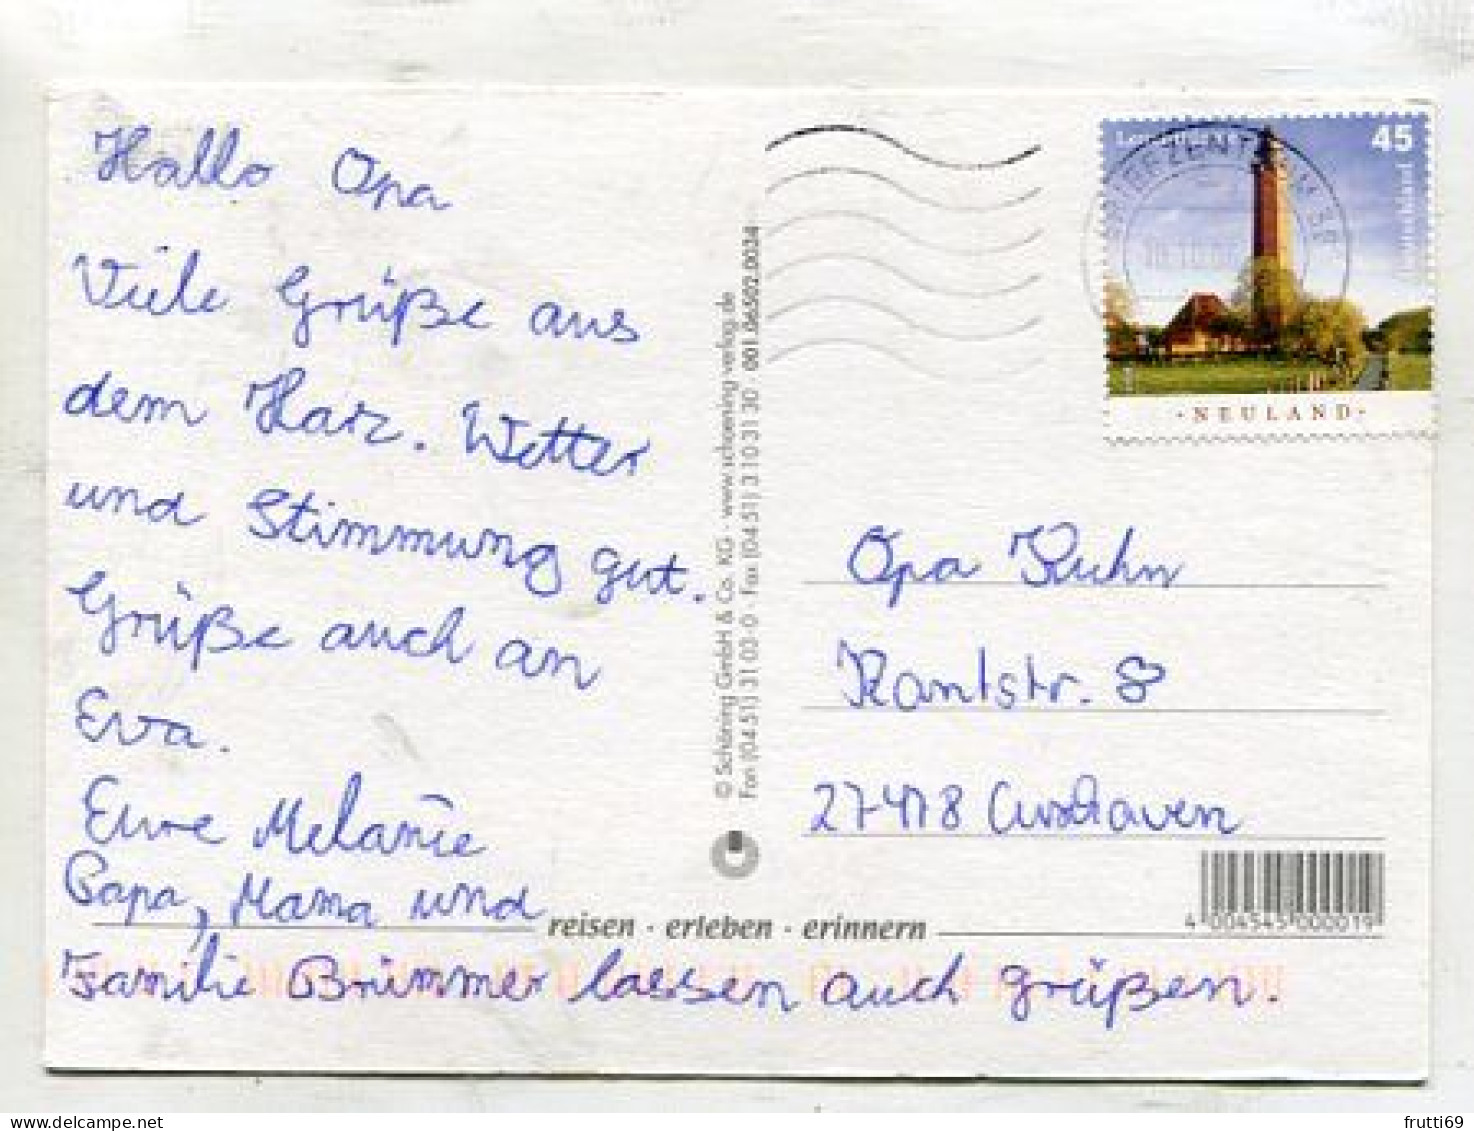 Hallo Opa
Viele Grüße aus
dem Harz. Wetter
und Stimmung gut.
Grüße auch an
Eva.
Eure Melanie
Papa, Mama und
Familie Brümmer lassen auch grüßen.
© Schöning GmbH & Co. KG · www.schoening-verlag.de
Fon (04 51) 31 03-0 · Fax (04 51) 3 10 31 30 001.06502.0034
reisen · erleben · erinnern
45
Deutschland
·NEULAND·
BRIEFZENTRUM 38
Opa Kuhn
Kantstr. 8
27478 Cuxhaven
4 004545 000019
frutti69